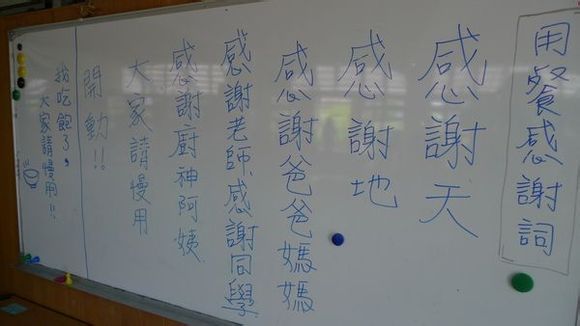 用餐感謝詞
感謝天
感謝地
感謝爸爸媽媽
感謝老師、感謝同學
感謝廚神阿姨
大家請慢用
開動!!
我吃飽了,
大家請慢用!!